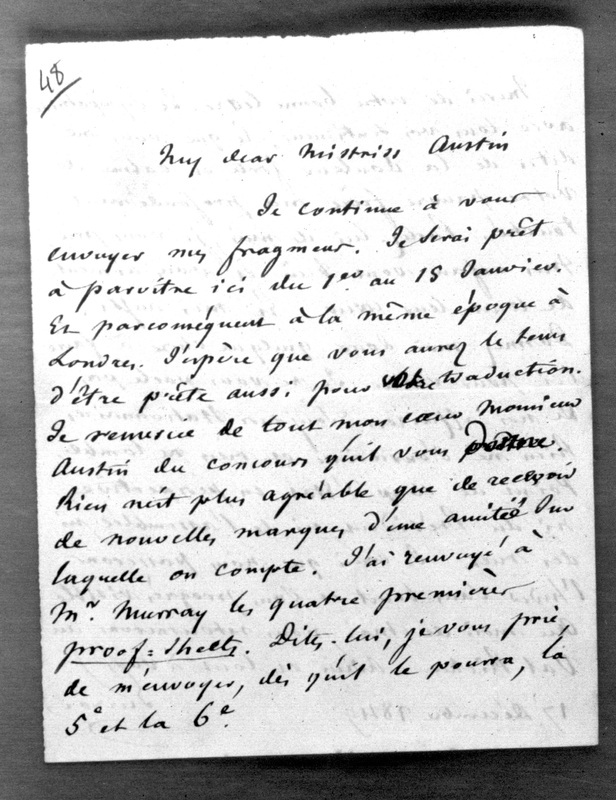 48
My dear Mistriss Austin
Je continue à vous
envoyer mes fragmens. Je serai prêt
à paroître ici du 1er au 15 Janvier.
Et parconséquent à la même époque à
Londres. J'espère que vous aurez le tems
d'être prête aussi pour votre traduction.
Je remercie de tout mon cœur Monsieur
Austin du concours qu'il vous
Rien n'est plus agréable que de recevoir
de nouvelles marques d'une amitié sur
laquelle on compte. J'ai renvoyé à
Mr. Murray les quatre premières
proof=sheets. Dites-lui, je vous prie,
de m'envoyer, dès qu'il le pourra, la
5e et la 6e.